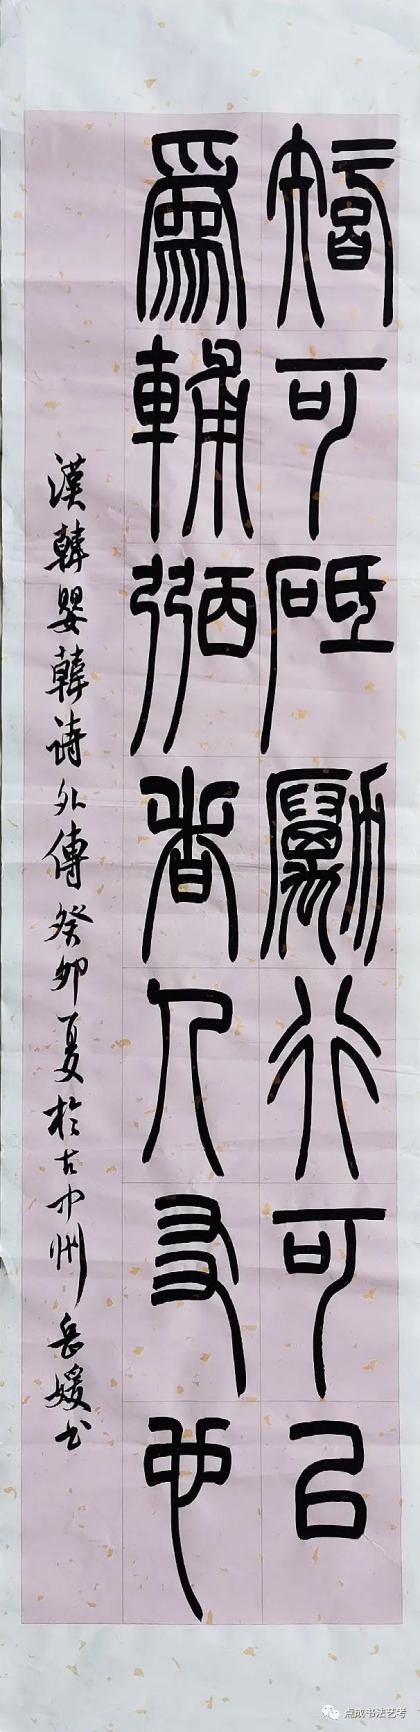 智可砥勵行可以
爲輔弼者人友也
漢韓嬰韓詩外傳癸卯夏於古中州岳媛书
点成书法艺考